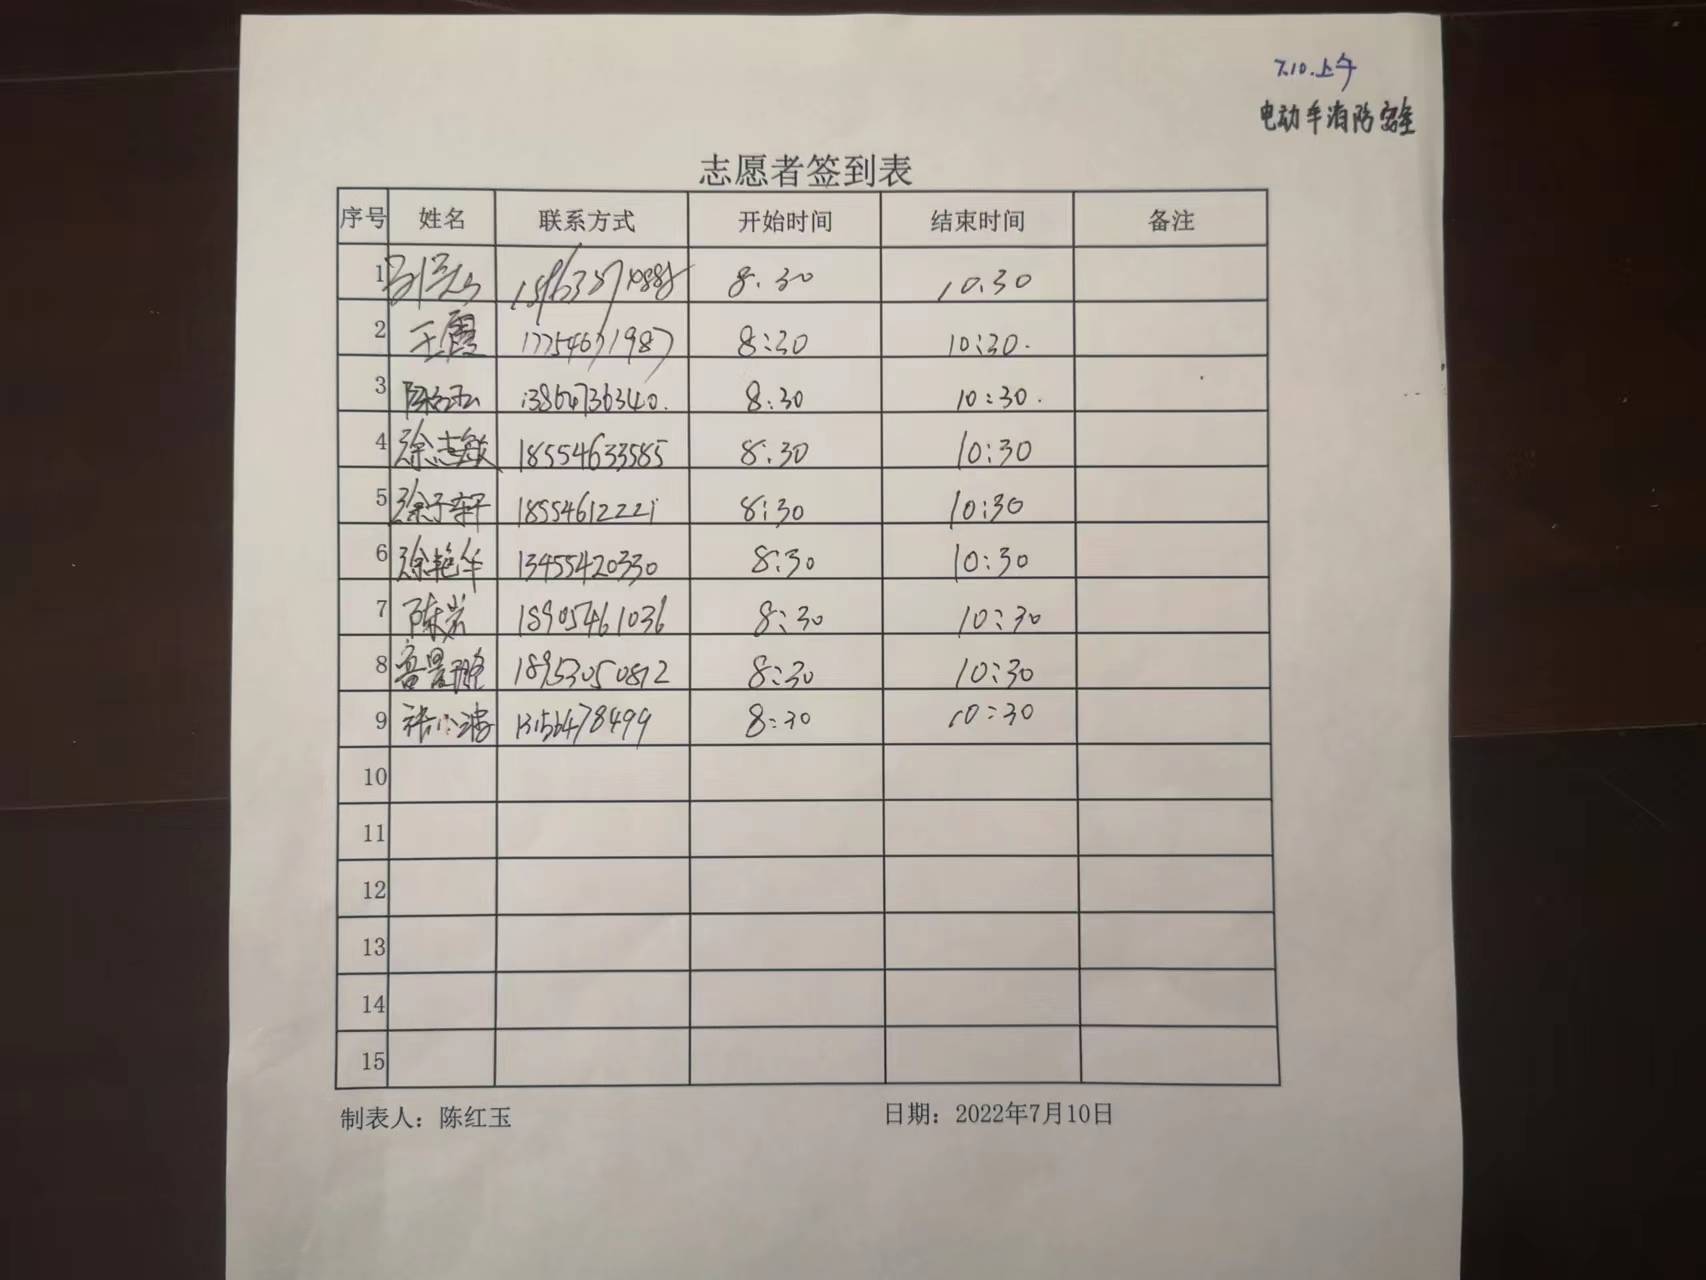 7.10.上午
电动车消防安全
志愿者签到表
序号 姓名 联系方式 开始时间 结束时间 备注
1 8.30 10.30
2 王霞 17754671987 8:30 10:30.
3 陈红玉 13864736340. 8:30 10:30.
4 徐志敏 18554633585 8:30 10:30
5 徐子轩 18554612221 8:30 10:30
6 徐艳华 13455420330 8:30 10:30
7 陈岩 18905461036 8:30 10:30
8 18953050872 8:30 10:30
9 13156478499 8:30 10:30
10
11
12
13
14
15
制表人：陈红玉 日期：2022年7月10日